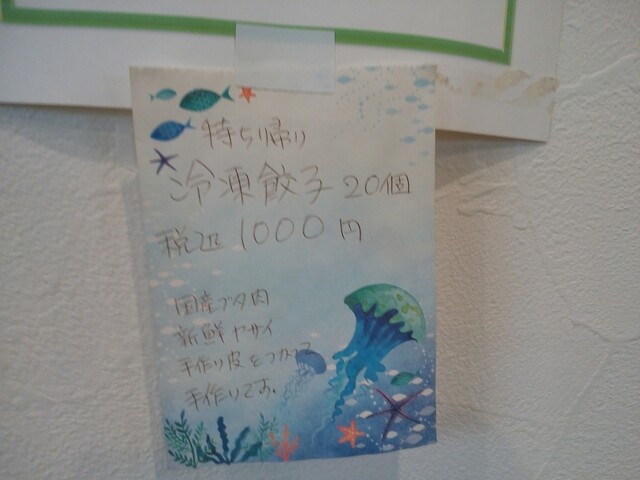 持ち帰り
冷凍餃子 20個
税込 1000円
国産ブタ肉
新鮮ヤサイ
手作り皮をつかって
手作りです。